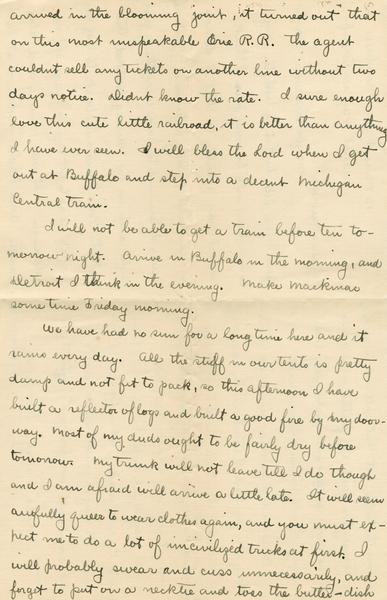 arrived in the blooming joint, it turned out that
on this most unspeakable Erie R.R. the agent
couldnt sell any tickets on another line without two
days notice. Didnt know the rate. I sure enough
love this cute little railroad, it is better than anything
I have ever seen. I will bless the Lord when I get
out at Buffalo and step into a decent Michigan
Central train.
I will not be able to get a train before ten to-
morrow night. Arrive in Buffalo in the morning, and
Detroit I think in the evening. Make Mackinac
some time Friday morning.
We have had no sun for a long time here and it
rains every day. All the stuff in our tents is pretty
damp and not fit to pack, so this afternoon I have
built a reflector of logs and built a good fire by my door-
way. Most of my duds ought to be fairly dry before
tomorrow. My trunk will not leave till I do though
and I am afraid will arrive a little late. It will seem
awfully queer to wear clothes again, and you must ex-
pect me to do a lot of uncivilized tricks at first. I
will probably swear and cuss unnecessarily, and
forget to put on a necktie and toss the butter-dish